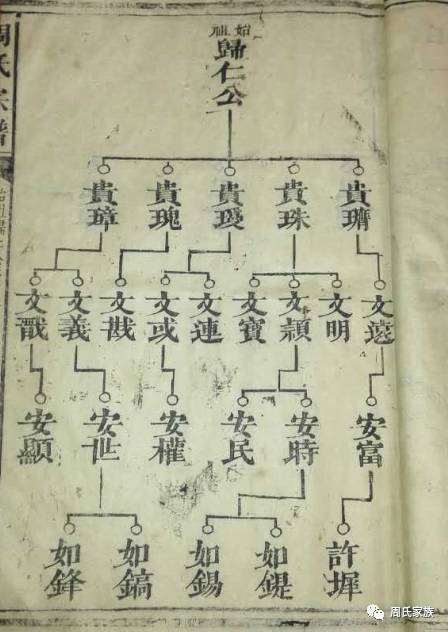 始祖
歸仁公
貴璾
貴珠
貴瑷
貴瑰
貴璋
文遠
文明
文顯
文寶
文連
文或
文戡
文義
文戩
安富
安時
安民
安權
安世
安顯
許墀
如鍉
如錫
如鎬
如鋒
周氏宗譜
周氏家族